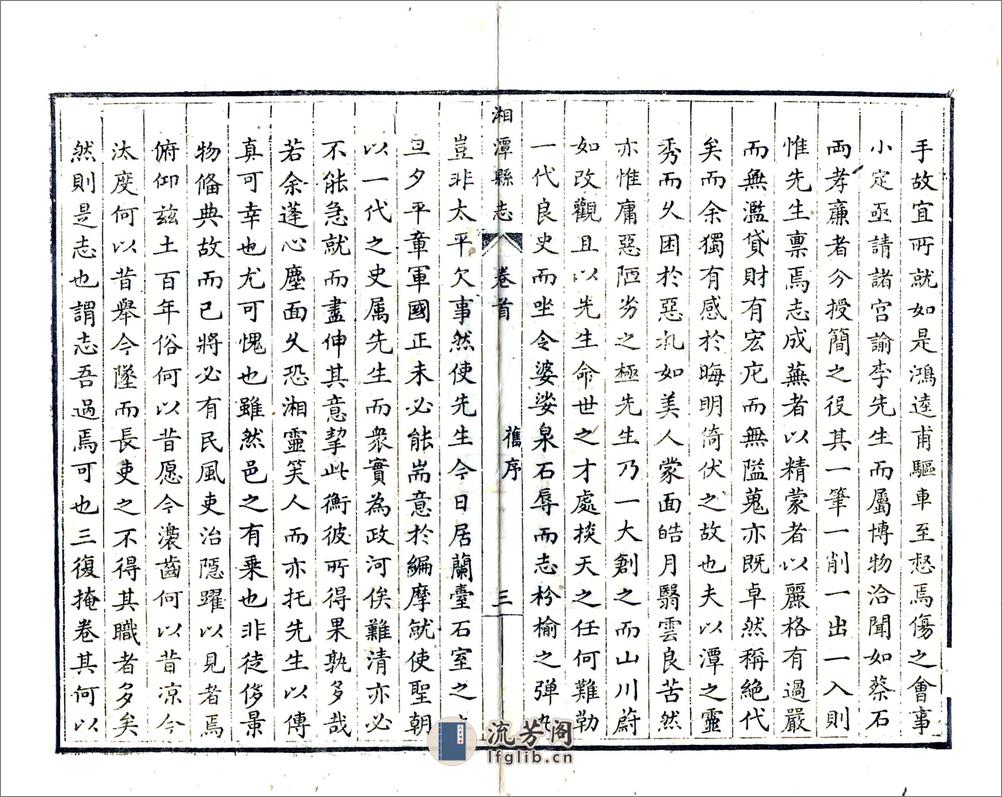 手故宜所就如是鴻逵甫驅車至惄焉傷之會事
小定亟請諸宫諭李先生而屬博物洽聞如蔡石
兩孝廉者分授簡之役其一筆一削一出一入則
惟先生禀焉志成蕪者以精蒙者以麗格有過嚴
而無濫貸財有宏庀而無隘蒐亦既卓然稱絶代
矣而余獨有感於晦明倚伏之故也夫以潭之靈
秀而乆困於惡札如美人蒙面皓月翳雲良苦然
亦惟庸惡陋劣之極先生乃一大創之而山川蔚
如改觀且以先生命世之才處掞天之任何難勒
一代良史而坐令婆娑泉石辱而志枌榆之弹丸
湘潭縣志 卷首 舊序 三
豈非太平欠事然使先生今日居蘭臺石室之上
旦夕平章軍國正未必能耑意於編摩就使聖朝
以一代之史属先生而衆實為政河俟難清亦必
不能急就而盡伸其意挈此衡彼所得果孰多哉
若余蓬心塵面乆恐湘靈笑人而亦托先生以傳
真可幸也尤可愧也雖然邑之有乗也非徒侈景
物俻典故而已將必有民風吏治隱躍以見者焉
俯仰兹土百年俗何以昔愿今澆齒何以昔凉今
汰度何以昔舉今墜而長吏之不得其職者多矣
然則是志也謂志吾過焉可也三復掩卷其何以
流芳阁
lfglib.cn